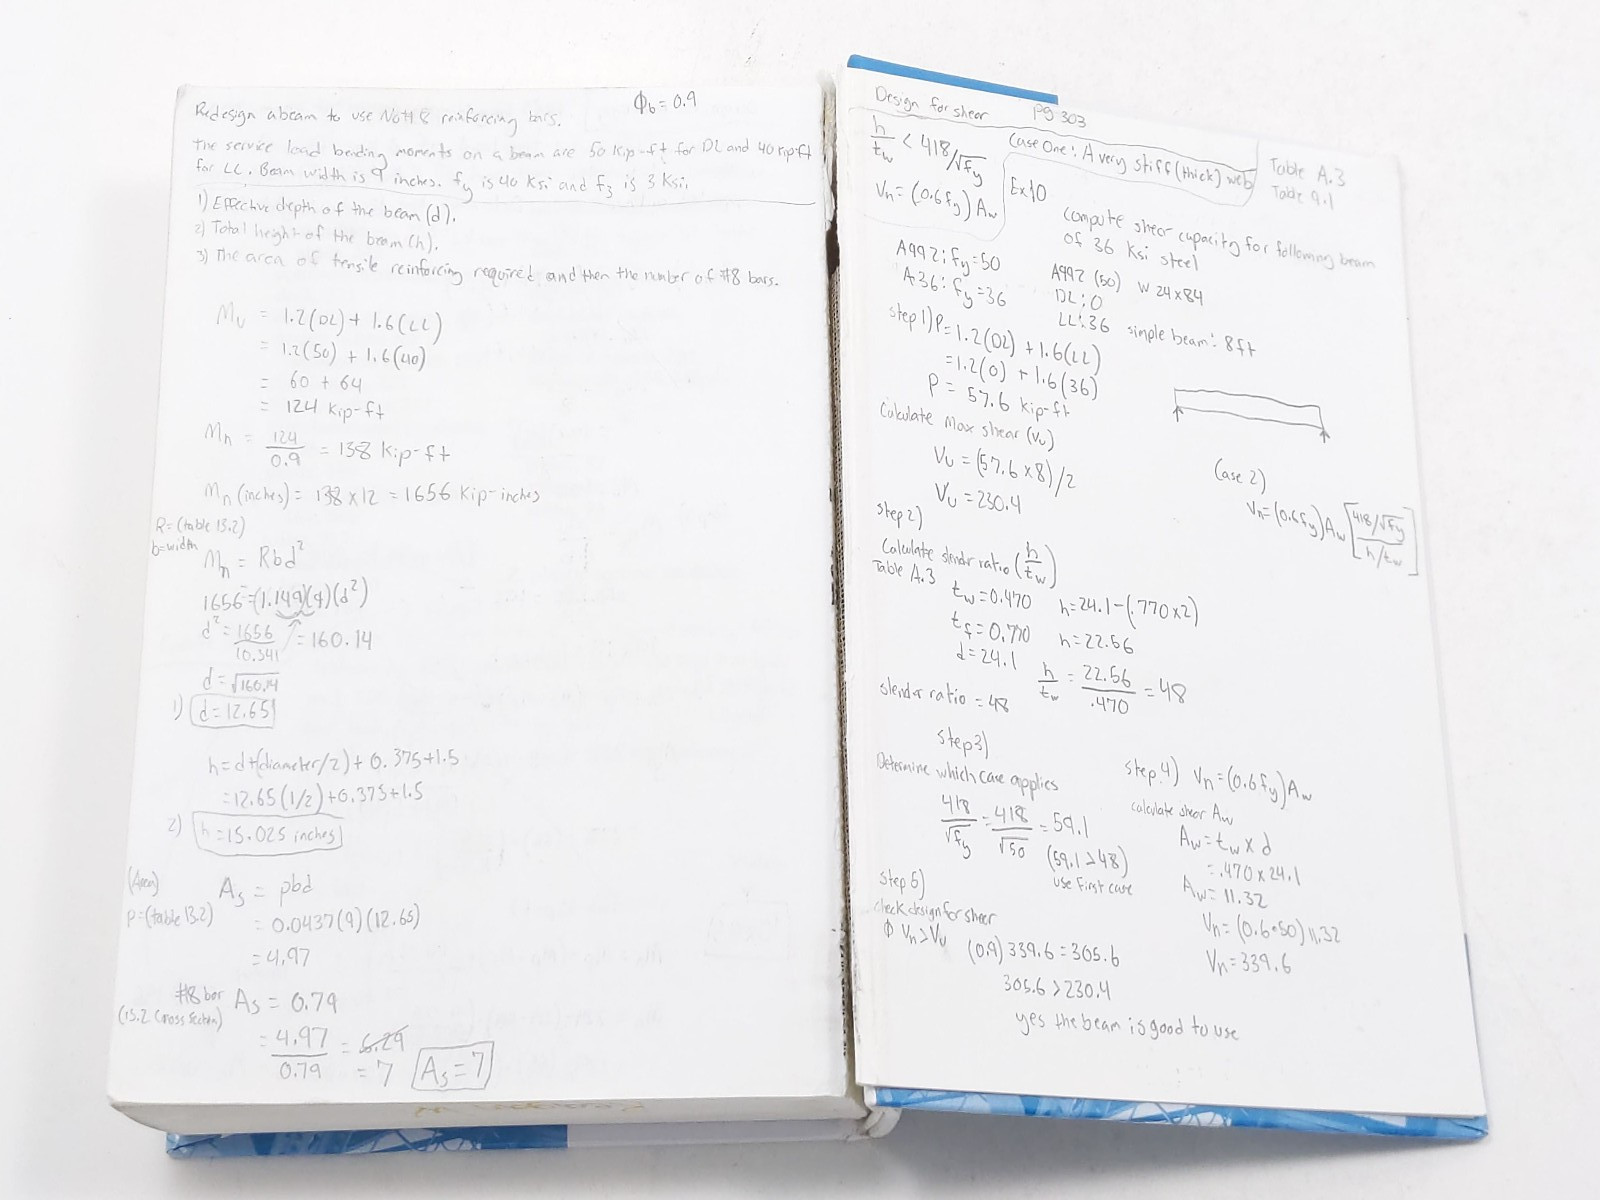 Redesign a beam to use No# 8 reinforcing bars.
Φb = 0.9
The service load bending moments on a beam are 50 kip-ft for DL and 40 kip-ft
for LL. Beam width is 9 inches. fy is 40 ksi and f3 is 3 ksi.
1) Effective depth of the beam (d).
2) Total height of the beam (h).
3) The area of tensile reinforcing required and then the number of #8 bars.
Mu = 1.2(DL) + 1.6(LL)
= 1.2(50) + 1.6(40)
= 60 + 64
= 124 kip-ft
Mn = 124/0.9 = 138 kip-ft
Mn (inches) = 138 x 12 = 1656 kip-inches
R=(table 13.2)
b=width
Mn = Rbd²
1656 = (1.149)(9)(d²)
d² = 1656/10.341 = 160.14
d = √160.14
1) d = 12.65
h = d+(diameter/2) + 0.375+1.5
= 12.65(1/2)+0.375+1.5
2) h = 15.025 inches
(Area)
p=(table 13.2)
As = pbd
= 0.0437(9)(12.65)
= 4.97
#8 bar
(13.2 cross section)
As = 0.79
= 4.97/0.79 = 6.29
= 7
As = 7
Design for shear pg 303
h/tw < 418/√fy
Case One: A very stiff (thick) web
Table A.3
Table 9.1
Vn = (0.6fy) Aw
Ex 10
compute shear capacity for following beam
of 36 ksi steel
A992: fy=50
A36: fy=36
A992 (50) W 24x84
DL: 0
LL: 36 simple beam: 8ft
step 1) P = 1.2(DL) + 1.6(LL)
= 1.2(0) + 1.6(36)
P = 57.6 kip-ft
Calculate max shear (Vu)
Vu = (57.6 x 8)/2
Vu = 230.4
Case 2)
Vn = (0.6fy) Aw [418/√fy / h/tw]
step 2)
Calculate slendr ratio (h/tw)
Table A.3
tw = 0.470
h = 24.1 - (.770x2)
tf = 0.770
h = 22.56
d = 24.1
h/tw = 22.56/.470 = 48
slendr ratio = 48
step 3)
Determine which case applies
418/√fy = 418/√50 = 59.1
(59.1 > 48)
use First case
step 4) Vn = (0.6fy) Aw
calculate shear Aw
Aw = tw x d
= .470 x 24.1
Aw = 11.32
Vn = (0.6•50) 11.32
Vn = 339.6
step 5)
check design for sheer
Φ Vn > Vu
(0.9) 339.6 = 305.6
305.6 > 230.4
yes the beam is good to use